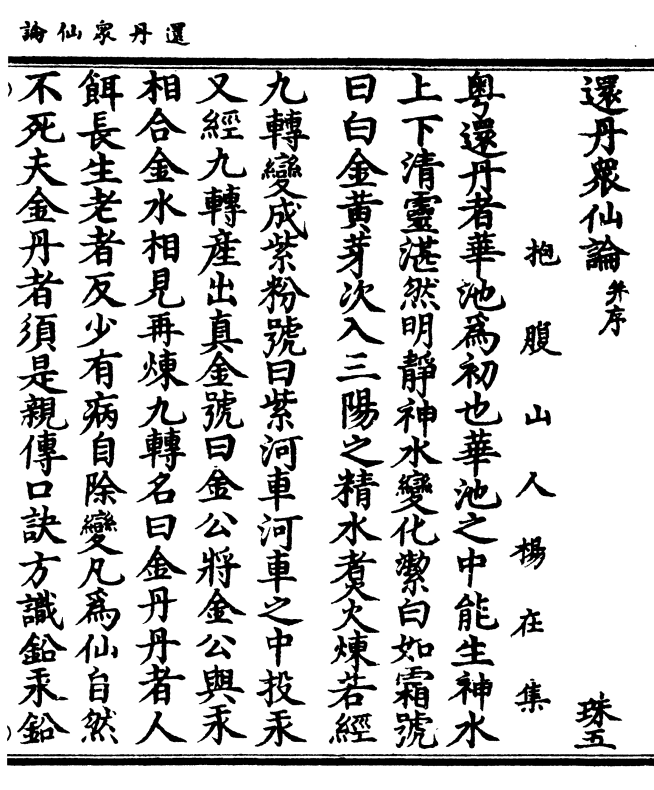 還丹眾仙論
還丹眾仙論并序
珠五
抱腹山人楊在集
粤還丹者華池爲初也華池之中能生神水
上下清靈湛然明靜神水變化潔白如霜號
曰白金黃芽次入三陽之精水煮火煉若經
九轉變成紫粉號曰紫河車河車之中投汞
又經九轉產出真金號曰金公將金公與汞
相合金水相見再煉九轉名曰金丹丹者人
餌長生老者反少有病自除變凡爲仙自然
不死夫金丹者須是親傳口訣方識鉛汞鉛